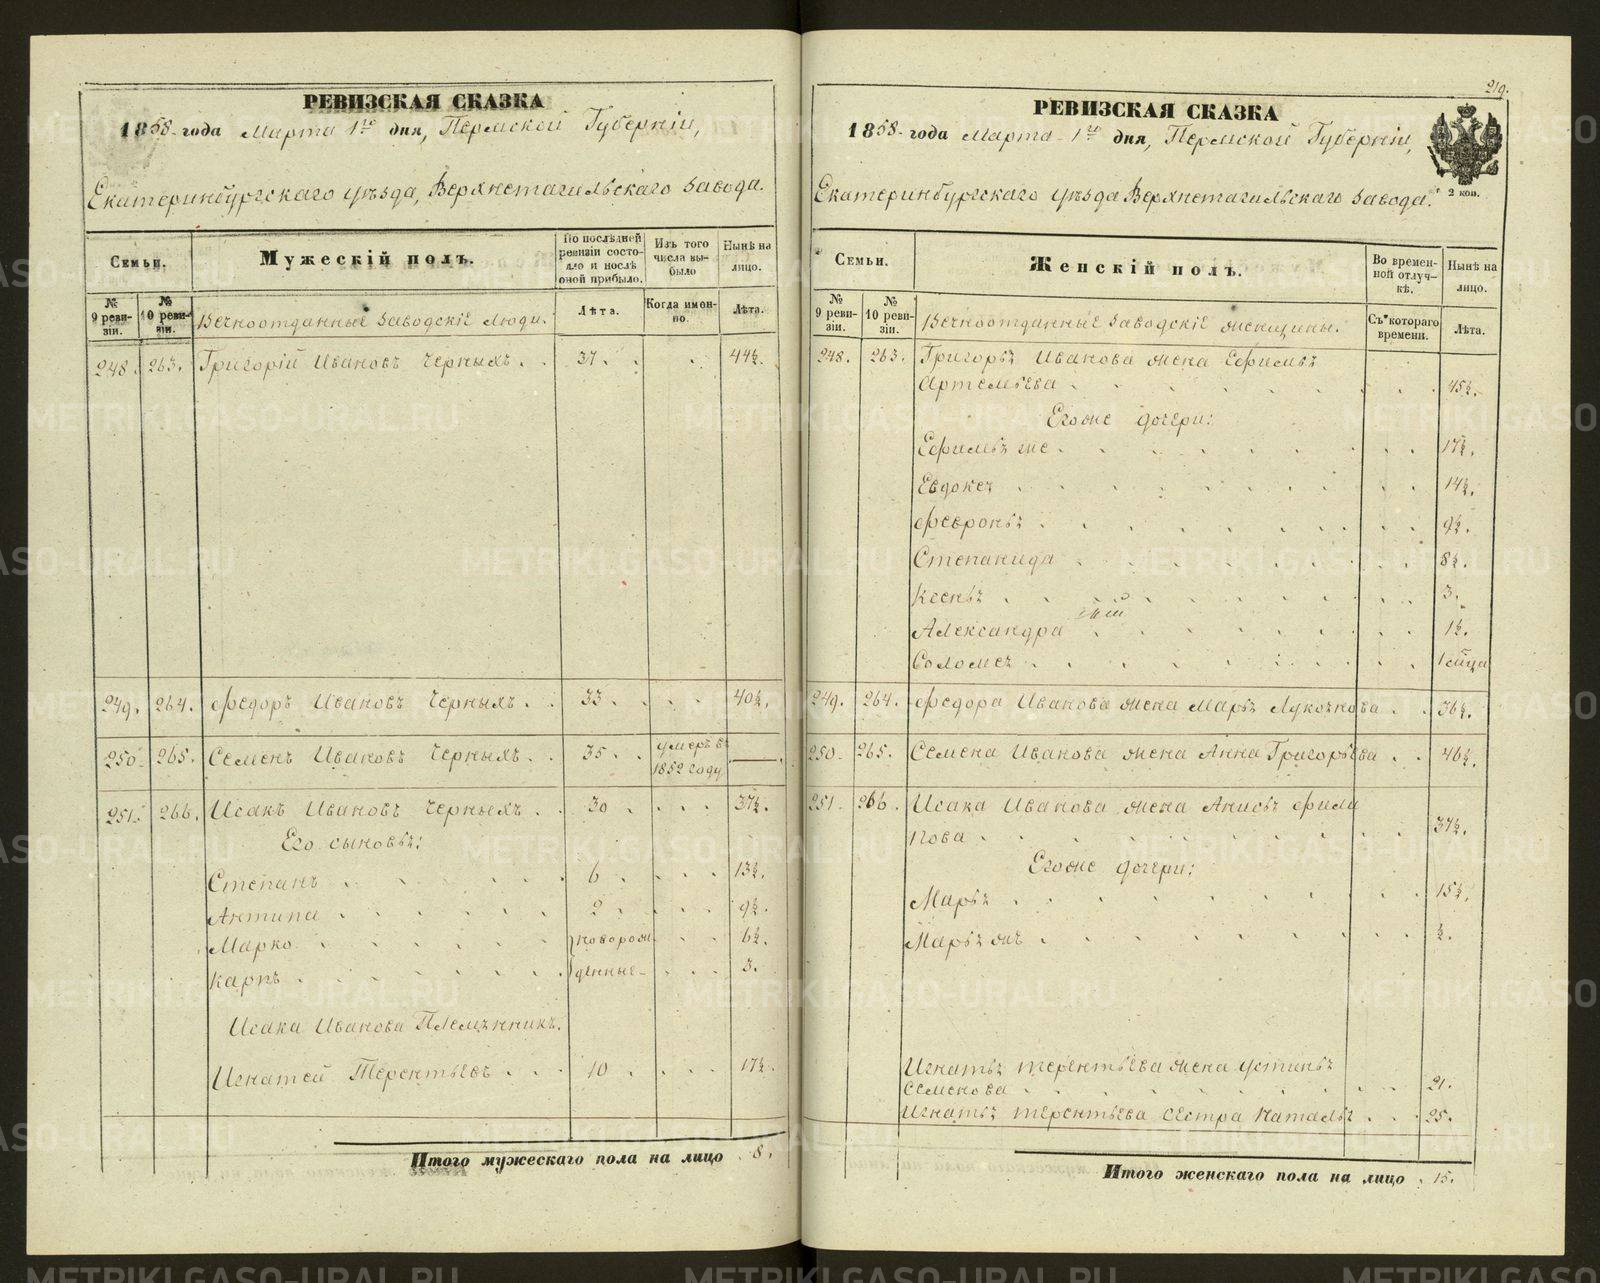 РЕВИЗСКАЯ СКАЗКА
1858 года Марта 1го дня, Пермской Губерніи,
Екатеринбургскаго уѣзда, Верхнетагильскаго завода.
Семьи.
Мужескій полъ.
По послѣдней ревизіи состояло и послѣ оной прибыло.
Изъ того числа выбыло
Нынѣ на лицо.
№ 9 ревизіи.
№ 10 ревизіи.
Вечноотданные заводскіе люди.
Лѣта.
Когда именно.
Лѣта.
248. 263. Григорій Ивановъ Черныхъ 37 44½.
249. 264. Федоръ Ивановъ Черныхъ 33 40½.
250. 265. Семенъ Ивановъ Черныхъ 35 умеръ въ 1852 году —
251. 266. Исакъ Ивановъ Черныхъ 30 37½.
Его сыновья:
Степанъ 6 13½.
Антипа 2 9½.
Марко новорож- 6½.
Карпъ денные 3.
Исака Иванова Племянникъ.
Игнатей Терентьевъ 10 17½.
Итого мужескаго пола на лицо 8.
219.
РЕВИЗСКАЯ СКАЗКА
1858 года Марта 1го дня, Пермской Губерніи,
Екатеринбургскаго уѣзда Верхнетагильскаго завода.
2 коп.
Семьи.
Женскій полъ.
Во временной отлучкѣ.
Нынѣ на лицо.
№ 9 ревизіи.
№ 10 ревизіи.
Вечноотданные заводскіе женщины.
Съ котораго времени.
Лѣта.
248. 263. Григорья Иванова жена Ефимья
Артемьева 45½.
Его же дочери:
Ефимья же 17½.
Евдокея 14½.
Февронья 9½.
Степанида 8½.
Ксенья 3.
Александра 1½.
Соломея 1 мца
249. 264. Федора Иванова жена Марья Лукоянова 36½.
250. 265. Семена Иванова жена Анна Григорьева 46½.
251. 266. Исака Иванова жена Анисья Фили
пова 37½.
Его же дочери:
Марья 15½.
Марья жъ ½.
Игнатья Терентьева жена Устинья
Семенова 21.
Игнатья Терентьева сестра Наталья 25.
Итого женскаго пола на лицо 15.
METRIKI.GASO-URAL.RU